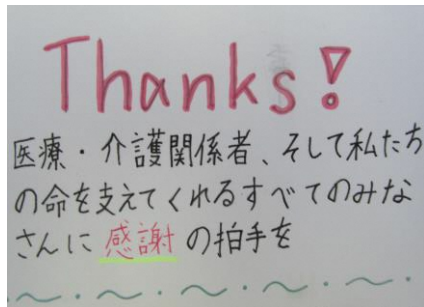 Thanks!
医療・介護関係者、そして私たち
の命を支えてくれるすべてのみな
さんに感謝の拍手を